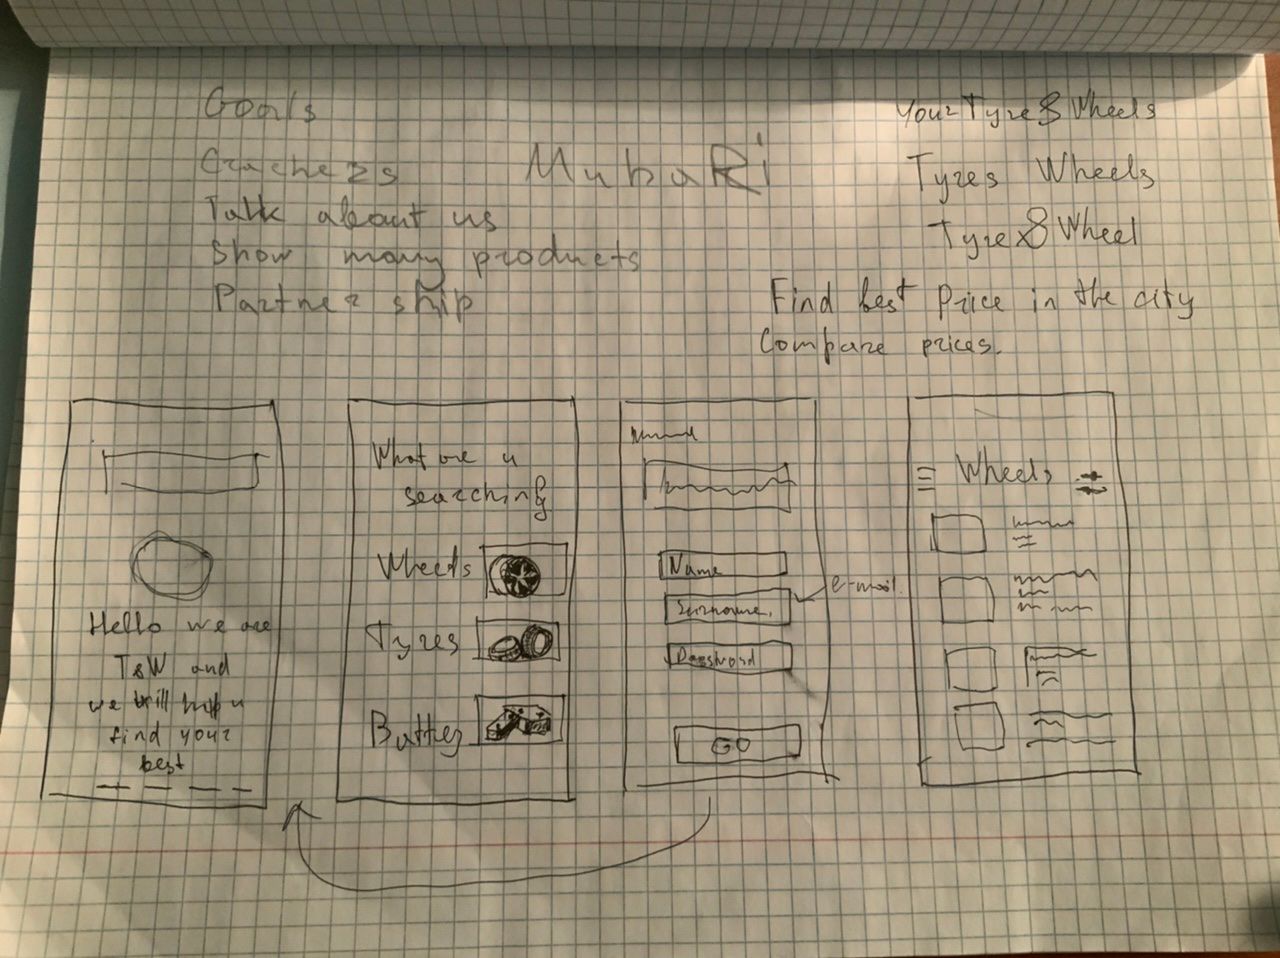 Goals
Crachers
Talk about us
Show many products
Partner ship
MubaRi
Your Tyre & Wheels
Tyres Wheels
Tyre & Wheel
Find best Price in the city
Compare prices.
Hello we are
T&W and
we will help u
find your
best
What are u
searching
Wheels
Tyres
Battery
Name
Surname.
e-mail.
Password
GO
Wheels